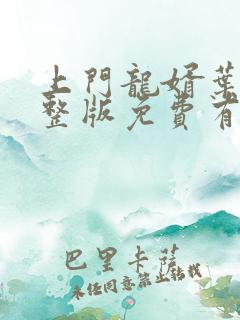 上門龍婿葉
整版免費有
巴里卡薩
未經同意禁止轉載